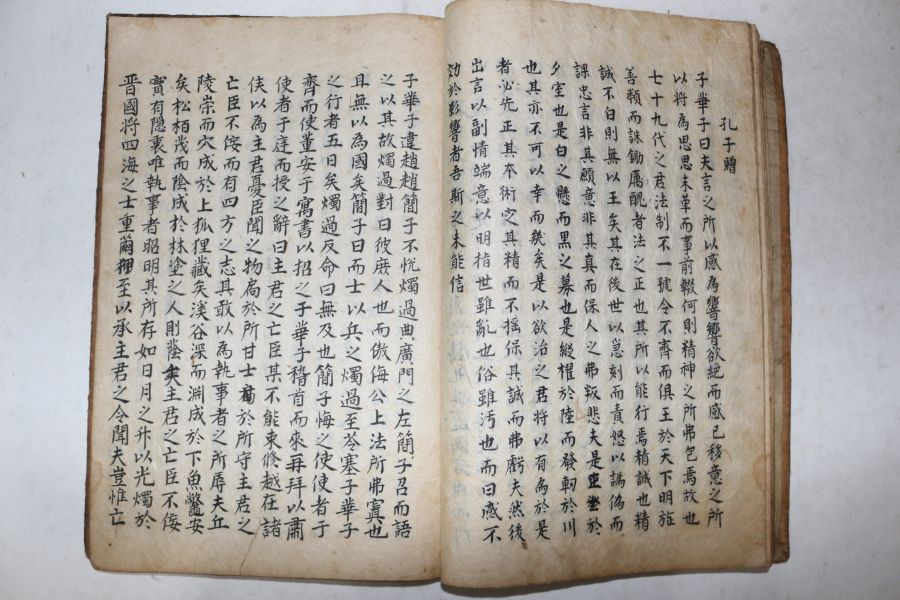 孔子贈
子華子曰夫言之所以感為響響欲絕而感已移意之所
以將為思思未革而事前輟何則精神之所弗包焉故也
七十九代之君法制不一號令不齊而俱王於天下明旌
善類而誅鋤厲醜者法之正也其所以能行焉精誠也精
誠不白則無以王矣其在後世以急刻而責怒以譎偽而
課忠言非其願意非其真而保人之弗叛悲夫是坐於
夕室也是白之懸而黑之募也是縱櫂於陸而發軔於川
也其亦不可以幸而幾矣是以欲治之君將以有為於是
者必先正其本術定其精而不搖保其誠而弗虧夫然後
出言以副情端意以明指世雖亂也俗雖汚也而曰感不
効於影響者吾斯之未能信
子華子違趙趙簡子不悅燭過典廣門之左簡子召而語
之以其故燭過對曰彼庶人也而傲侮公上法所弗寘也
且無以為國矣簡子曰而士以兵之燭過至苓塞子華子
之行者五日矣燭過反命曰無及也簡子悔之使使者于
齊而使董安于寓書以招之子華子稽首而來再拜以肅
使者于庭而授之辭曰主君之亡臣某不能束脩越在諸
侯以為主君憂臣聞之物扃於所甘士於所守主君之
亡臣不佞而有四方之志其敢以為執事者之所辱夫丘
陵崇而穴成於上狐狸藏矣溪谷深而淵成於下魚鱉安
矣松栢茂而陰成於林塗之人則蔭矣主君之亡臣不佞
實有隱衷唯執事者昭明其所存如日月之升以光燭於
晉國將四海之士重繭至以承主君之令聞夫豈惟亡